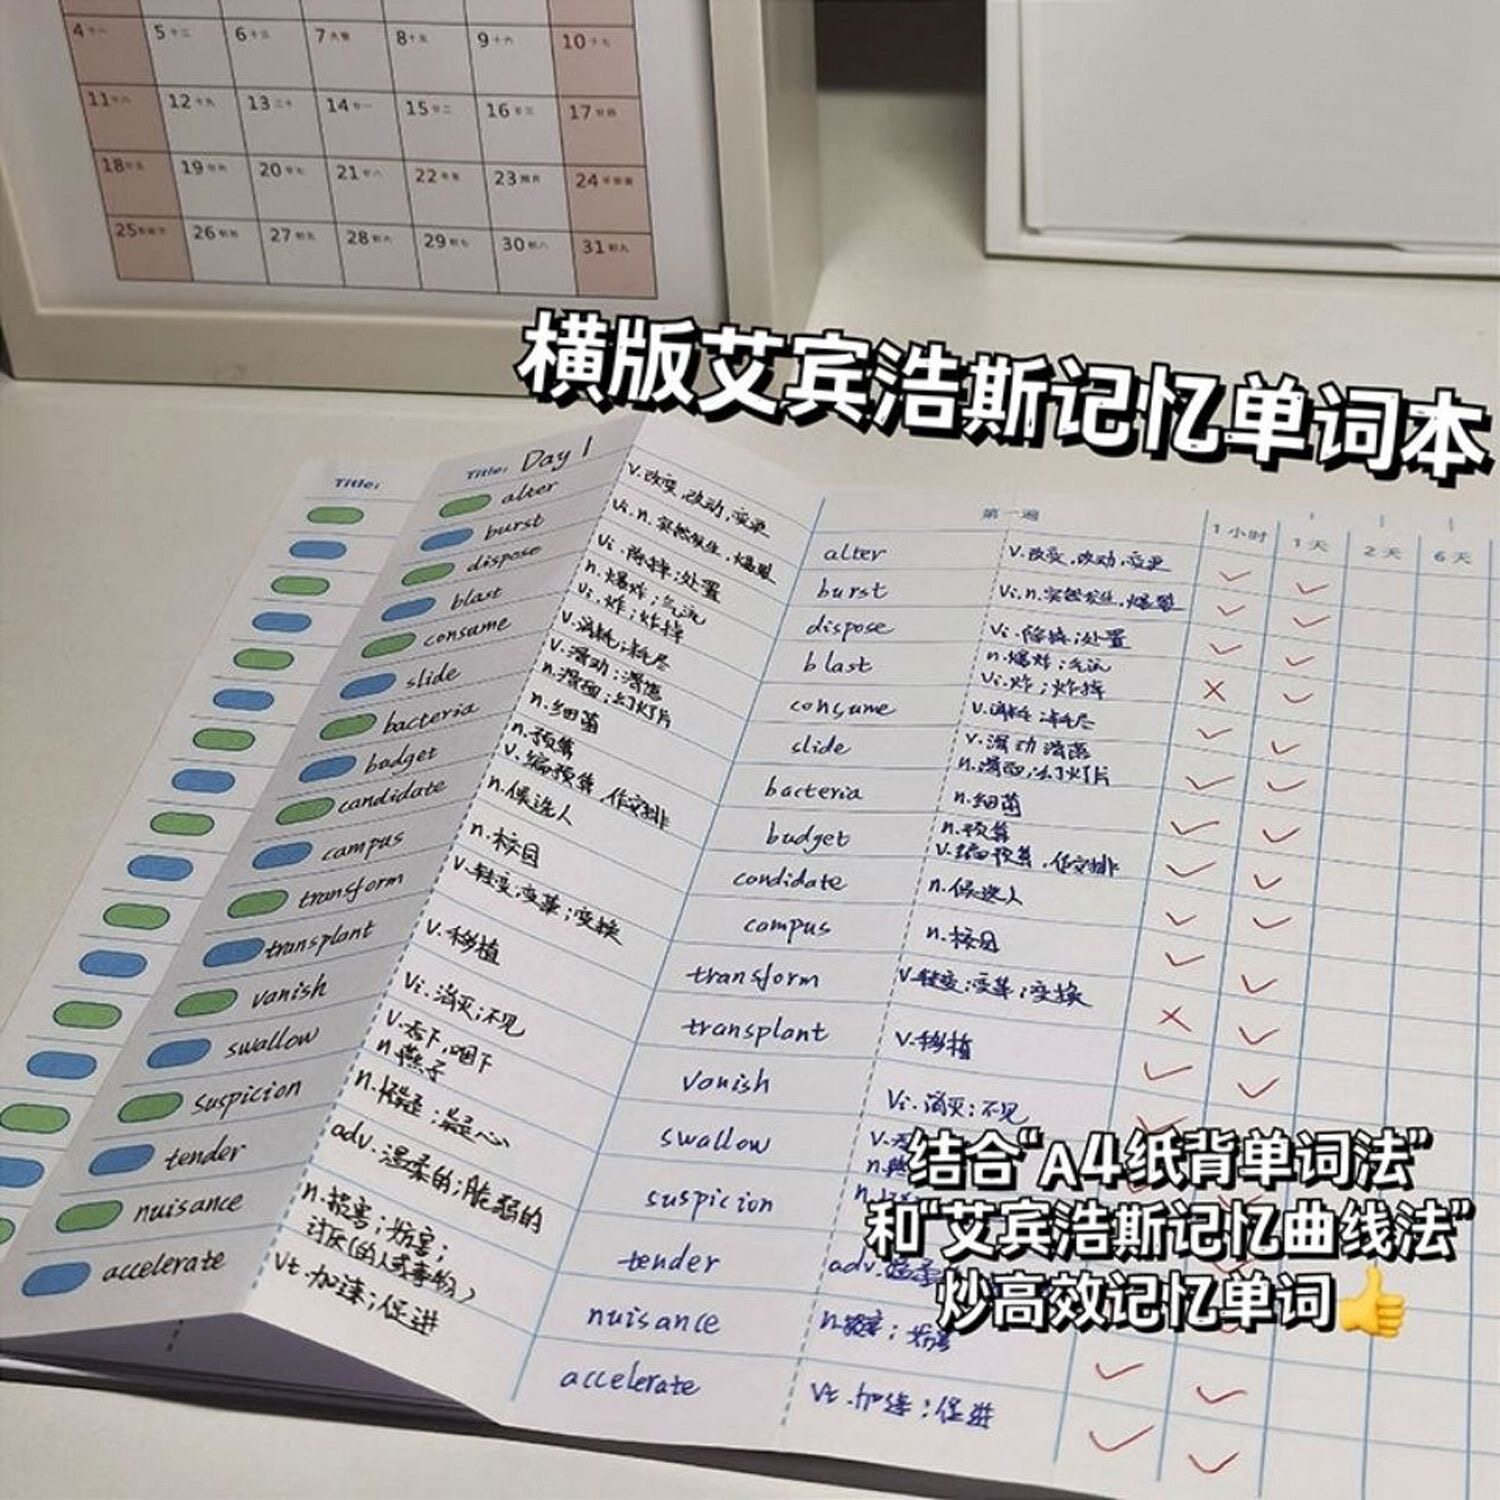 4 十一 5 十二 6 十三 7 大雪 8 十五 9 十六 10 十七
11 十八 12 十九 13 二十 14 廿一 15 廿二 16 廿三 17 廿四
18 廿五 19 廿六 20 廿七 21 廿八 22 冬至 23 22 24 平安夜
25 26 初四 27 初五 28 初六 29 初七 30 初八 31 初九
横版艾宾浩斯记忆单词本
Title:
Title: Day 1
alter v.改变,改动,变更
burst vi.n.突然发生,爆裂
dispose vi.除掉;处置
blast n.爆炸;气流
vi.炸;炸掉
consume v.消耗;耗尽
slide v.滑动;滑落
n.滑面;幻灯片
bacteria n.细菌
budget n.预算
v.编预算,作安排
candidate n.候选人
campus n.校园
transform v.转变;变革;变换
transplant v.移植
vanish vi.消灭;不见
swallow v.吞下,咽下
n.燕子
suspicion n.怀疑;疑心
tender adv.温柔的;脆弱的
nuisance n.损害;妨害;
讨厌(的人或事物)
accelerate vt.加速;促进
第一遍 1小时 1天 2天 6天
alter v.改变,改动,变更
burst vi.n.突然发生,爆裂
dispose vi.除掉;处置
blast n.爆炸;气流
vi.炸;炸掉
consume v.消耗;耗尽
slide v.滑动 滑落
n.滑面;幻灯片
bacteria n.细菌
budget n.预算
v.编预算,作安排
candidate n.候选人
campus n.校园
transform v.转变;变革;变换
transplant v.移植
vanish vi.消灭;不见
swallow v.
suspicion
tender adv.
nuisance n.损害;妨害
accelerate vt.加速;促进
结合“A4纸背单词法”
和“艾宾浩斯记忆曲线法”
炒高效记忆单词👍